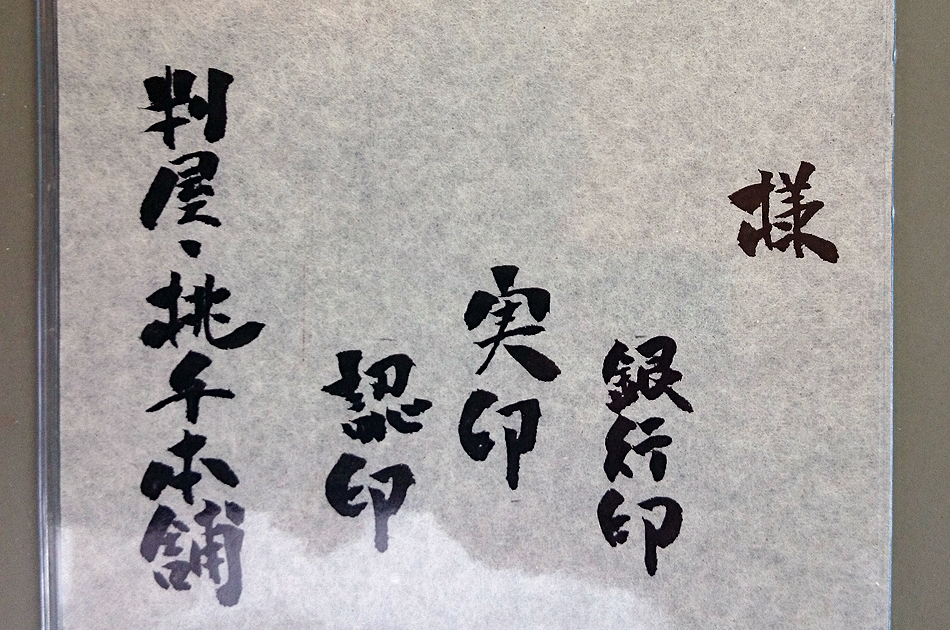 様
銀行印
実印
認印
判屋・挑千本舗